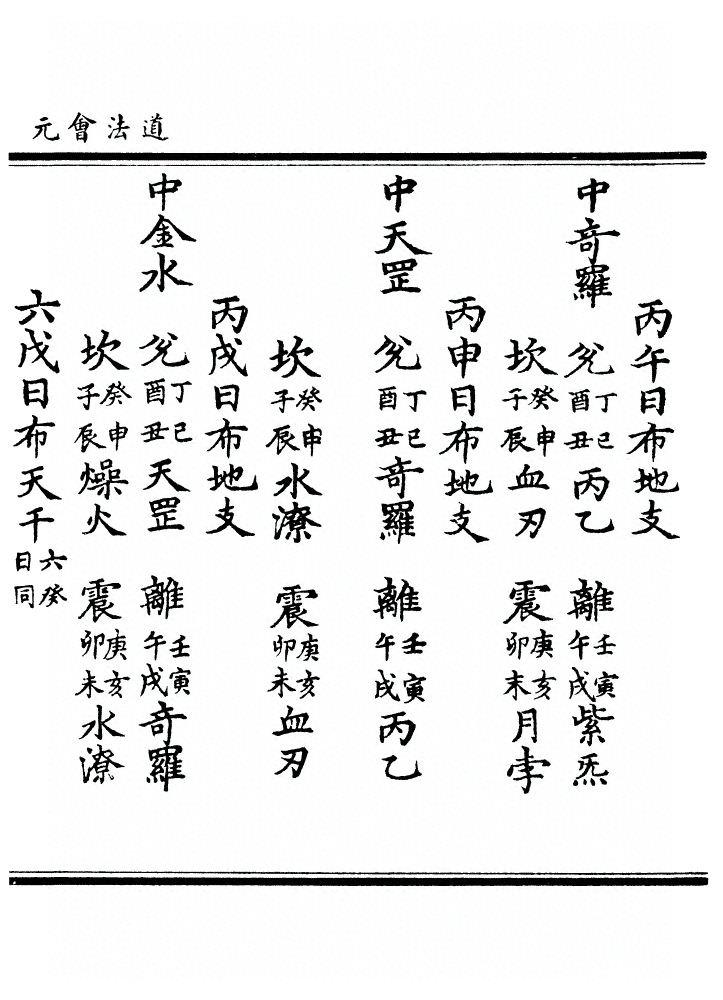 道法會元
丙午日布地支
中竒羅　兊丁巳酉丑丙乙　離壬寅午戌紫炁
坎癸申子辰血刃　震庚亥卯末月孛
丙申日布地支
中天罡　兊丁巳酉丑竒羅　離壬寅午戌丙乙
坎癸申子辰水潦　震庚亥卯未血刃
丙戌日布地支
中金水　兊丁巳酉丑天罡　離壬寅午戌竒羅
坎癸申子辰燥火　震庚亥卯未水潦
六戊日布天千六癸日同